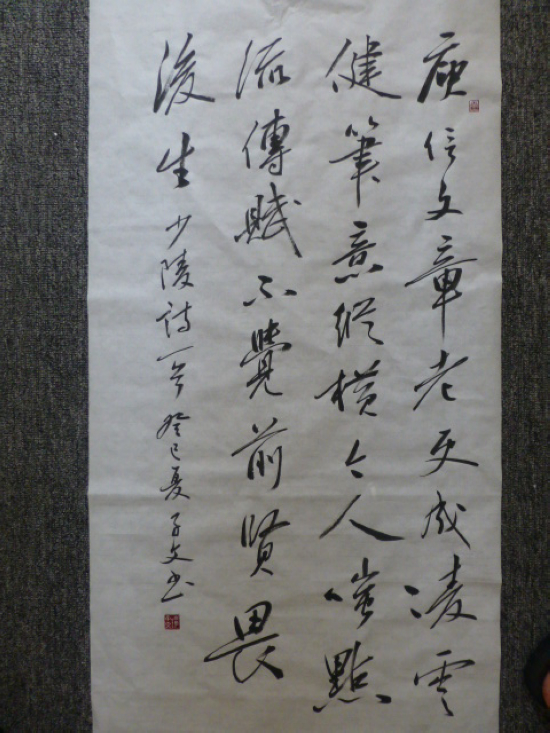 庾信文章老更成凌雲
健筆意縱橫今人嗤點
流傳賦不覺前賢畏
後生 少陵詩一首 癸巳夏 子文書